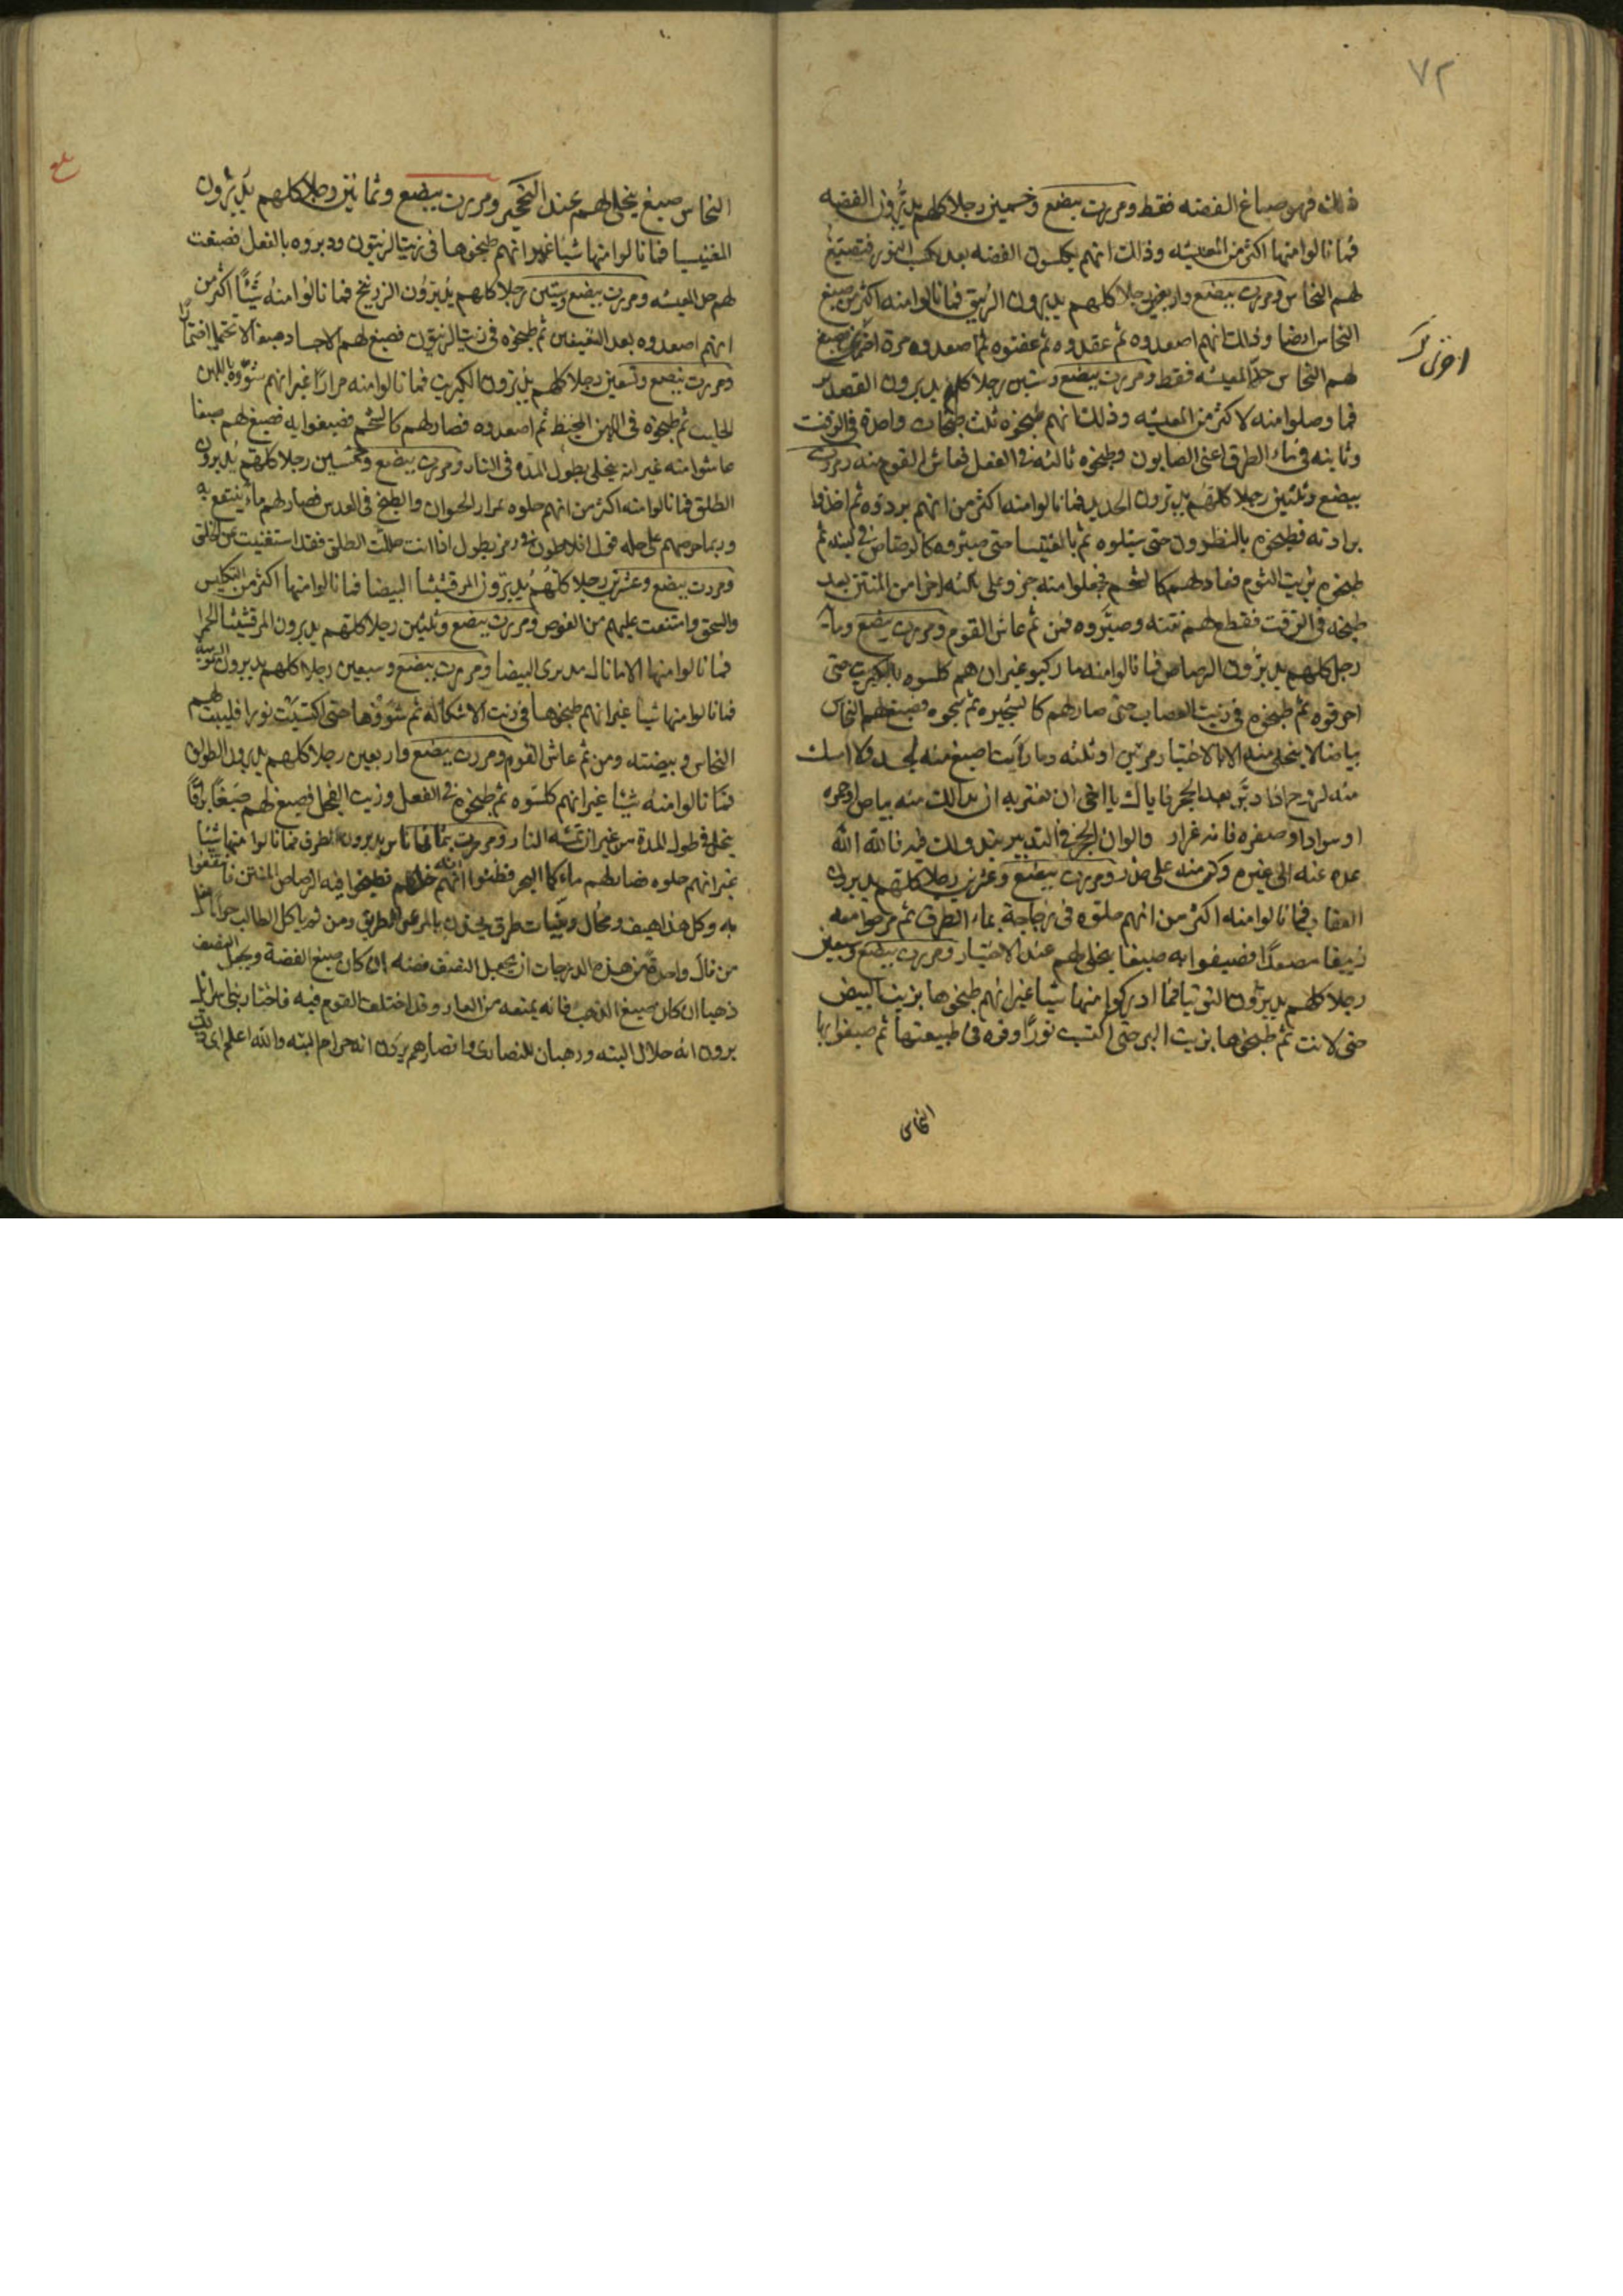 ٧٢
ذلك فهو صباغ الفضه فقط ومررت ببضع وخمسين رجلا كلهم يدبّرون الفضه
فما نالوا منها اكثر من المعيشه وذلك انهم يكلسون الفضه بعد فتصبغ
لهم النحاس ومررت ببضع واربعين رجلا كلهم يدبرون الزيبق فما نالوا منه اكثر من صبغ
النحاس ايضا وذلك انهم اصعدوه ثم عقدوه ثم عفنوه ثم اصعدوه مرة اخرى فصبغ
اخرى
لهم النحاس حد المعيشه فقط ومررت ببضع وستين رجلا كلهم يدبرون القصدير
فما وصلوا منه لاكثر من المعيشه وذلك انهم طبخوه ثلث طبخات واحدة في الزفت
وثانيه في ماء الطرق اعنى الصابون وطبخوه ثالثه في الفعل فعاش القوم منه ومررت
ببضع وثلثين رجلا كلهم يدبرون الحديد فما نالوا منه اكثر من انهم بردوه ثم اخذوا
برادته فطبخوه بالنطرون حتى ثم بالمغنيسا حتى صيروه كالرصاص في لينه ثم
طبخوه بزيت الثوم فصار لهم كالشحم فجعلوا منه جزو وعلى ثلثه اخرا من المنتن بعد
طبخه في الزفت فقطع لهم نتنه وصيّروه فمن ثم عاش القوم ومررت ببضع ومايه
رجل كلهم يدبرون الرصاص فما نالوا منه ما غير ان هم كلسوه بالكبريت حتى
احرقوه ثم طبخوه في زيت حتى صار لهم ثم فصبغ لهم النحاس
بياضا لا ينحلى منه الا بالاختبار مرتين او ثلثه وما رأيت اصبغ منه لجسد ولا امسك
منه لزوجا اذا دبّر بعد الحجر فاياك يا اخى ان تغتر به ان بدا لك منه بياض او حمره
او سوادا او صفره فانه غرار والوان الحجر في التدبير فالله الله
عنه الى غيره وكن منه على حذر ومررت ببضع وعشرين رجلا كلهم يدبرون
العقاب فما نالوا منه اكثر من انهم حلوه في زجاجة بماء الطرق ثم مزجوا معه
زيبقا مصعدًا فصبغوا به صبغا ينحلى لهم عند الاختبار ومررت ببضع وسبعين
رجلا كلهم يدبرون التوتيا فما ادركوا منها شيا غير انهم طبخوها بزيت البيض
حتى لانت ثم طبخوها بزيت حتى اكتسبت نورًا وقوه في طبيعتها ثم صبغوا بها
النحاس
بلغ
النحاس صبغ ينحلى لهم عند ومررت ببضع وثمانين رجلا كلهم يدبّرون
المغنيسيا فما نالوا منها شيا غير انهم طبخوها في زيت الزيتون ودبروه بالفعل فصبغت
لهم حد المعيشه ومررت ببضع وستين رجلا كلهم يدبّرون الزرنيخ فما نالوا منه شيًا اكثر من
انهم اصعدوه بعد التعفين ثم طبخوه في زيت الزيتون فصبغ لهم الاجساد صبغا لا تحمد
ومررت ببضع وتسعين رجلا كلهم يدبّرون الكبريت فما نالوا منه مرادًا غير انهم شوّوه باللبن
الحليب ثم طبخوه في الدهن ثم اصعدوه فصار لهم كالشحم فصبغوا به فصبغ لهم صبغا
عاشوا منه غير انه ينحلى بطول المدة في النار ومررت ببضع وخمسين رجلا كلهم يدبرون
الطلق فما نالوا منه اكثر من انهم حلوه بمرار الحيوان والطبخ في العدس فصار لهم ماء ينتفع به
وربما حرصهم على حله قول افلاطون في رمز يطول اذا انت حللت الطلق فقد استغنيت عن الخلق
ومررت ببضع وعشرين رجلا كلهم يدبّرون المرقشيثا البيضا فما نالوا منها اكثر من التكليس
والسحق وامتنعت عليهم من الغوص ومررت ببضع وثلثين رجلا كلهم يدبرون المرقشيثا الحمرا
فما نالوا منها الا ما نال مدبرى البيضا ومررت ببضع وسبعين رجلا كلهم يدبرون
فما نالوا منها شيا غير انهم طبخوها في زيت ثم شووها حتى اكتسبت نورا لهم
النحاس وبيضته ومن ثم عاش القوم ومررت ببضع واربعين رجلا كلهم يدبرون الطرق
فما نالوا منه شيئا غير انهم كلسوه ثم طبخوه في الفعل وزيت الفجل فصبغ لهم صبغًا
ينحلى في طول المدة من غير ان تمسّه النار ومررت بثمان اناس يدبرون الطرف فما نالوا منها شيئا
غير انهم حلوه فصار لهم ماء كماء البحر فظنوا انه فطبخوا فيه الرصاص المنتن فانتفعوا
به وكل هذا ومحال طرق بالمرء عن الطريق ومن
من نال واحدة من هذه الدرجات ان يجعل النصف فضه ان كان صبغ الفضة ويجعل النصف
ذهبا ان كان صبغ الذهب فانه يمنعه من العار وقد اختلف القوم فيه فاحبار بنى اسرايل
يرون انه حلال البته ورهبان النصارى وانصارهم يرون انه حرام البته والله اعلم اى ذلك